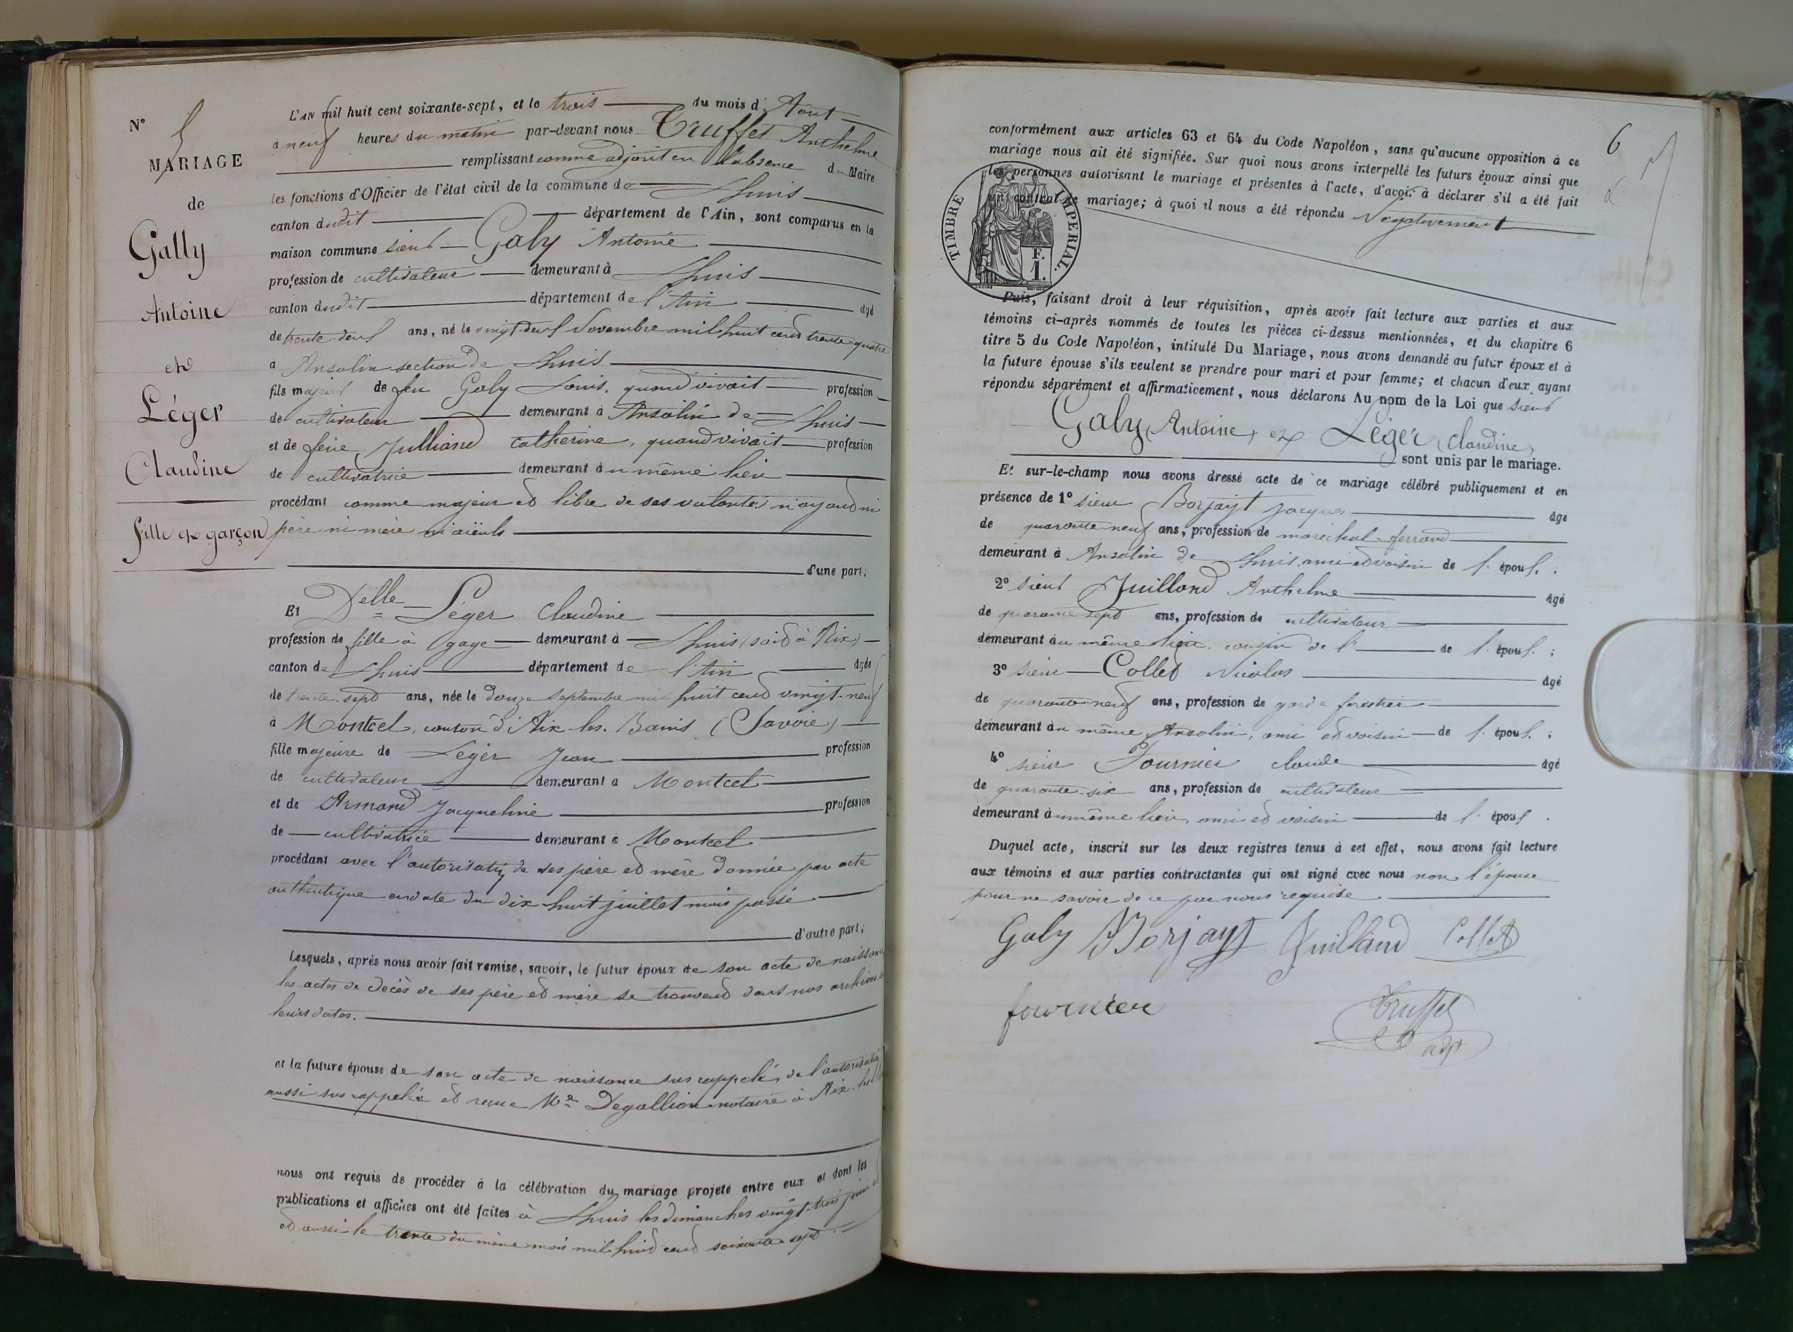 N° 5
MARIAGE
de
Gally
Antoine
et
Léger
Claudine
fille et garçon
L'AN mil huit cent soixante-sept, et le trois du mois d'Aout
à neuf heures du matin par-devant nous Truffet Anthelme
remplissant comme adjoint en l'absence du Maire
les fonctions d'Officier de l'état civil de la commune de Lhuis
canton dudit département de l'Ain, sont comparus en la
maison commune sieur Galy Antoine
profession de cultivateur demeurant à Lhuis
canton dudit département de l'Ain âgé
de trente deux ans, né le vingt-deux Novembre mil huit cent trente quatre
à Ansolin section de Lhuis
fils majeur de feu Galy Louis, quand vivait profession
de cultivateur demeurant à Ansolin de Lhuis
et de feue Julliand Catherine, quand vivait profession
de cultivatrice demeurant au même lieu
procédant comme majeur et libre de ses volontés n'ayant ni
père ni mère ni aïeuls
d'une part;
Et Delle Léger Claudine
profession de fille à gage demeurant à Lhuis (soit à Rix)
canton de Lhuis département de l'Ain âgée
de trente sept ans, née le douze septembre mil huit cent vingt-neuf
à Montcel, canton d'Aix-les-Bains (Savoie)
fille majeure de Léger Jean profession
de cultivateur demeurant à Montcel
et de Armand Jacqueline profession
de cultivatrice demeurant à Montcel
procédant avec l'autorisation de ses père et mère donnée par acte
authentique en date du dix huit juillet mois passé
d'autre part;
Lesquels, après nous avoir fait remise, savoir, le futur époux de son acte de naissance
les actes de décès de ses père et mère se trouvent dans nos archives à
leurs dates.
et la future épouse de son acte de naissance sus rappelé, de l'autorisation
aussi sus rappelée et reçue Me Degallion notaire à Aix-les
nous ont requis de procéder à la célébration du mariage projeté entre eux et dont les
publications et affiches ont été faites à Lhuis les dimanches vingt-trois juin
et aussi le trente du même mois mil huit cent soixante sept.
6
conformément aux articles 63 et 64 du Code Napoléon, sans qu'aucune opposition à ce
mariage nous ait été signifiée. Sur quoi nous avons interpellé les futurs époux ainsi que
les personnes autorisant le mariage et présentes à l'acte, d'avoir à déclarer s'il a été fait
un contrat de mariage; à quoi il nous a été répondu Négativement
TIMBRE IMPÉRIAL.
F.
1.
Puis, faisant droit à leur réquisition, après avoir fait lecture aux parties et aux
témoins ci-après nommés de toutes les pièces ci-dessus mentionnées, et du chapitre 6
titre 5 du Code Napoléon, intitulé Du Mariage, nous avons demandé au futur époux et à
la future épouse s'ils veulent se prendre pour mari et pour femme; et chacun d'eux ayant
répondu séparément et affirmativement, nous déclarons Au nom de la Loi que sieur
Galy Antoine, et Léger Claudine,
sont unis par le mariage.
Et sur-le-champ nous avons dressé acte de ce mariage célébré publiquement et en
présence de 1° sieur Borjayt Jacques âgé
de quarante neuf ans, profession de maréchal-ferrand
demeurant à Ansolin de Lhuis, ami et voisin de l'époux;
2° sieur Juilland Anthelme âgé
de quarante sept ans, profession de cultivateur
demeurant au même lieu, cousin de l' de l'époux;
3° sieur Collet Nicolas âgé
de quarante-neuf ans, profession de garde forestier
demeurant au même Ansolin, ami et voisin de l'époux;
4° sieur Fournier Claude âgé
de quarante-six ans, profession de cultivateur
demeurant au même lieu, ami et voisin de l'époux.
Duquel acte, inscrit sur les deux registres tenus à cet effet, nous avons fait lecture
aux témoins et aux parties contractantes qui ont signé avec nous non l'épouse
pour ne savoir de ce par nous requise
Galy Borjayt Juilland Collet
fournier Truffet
adjt